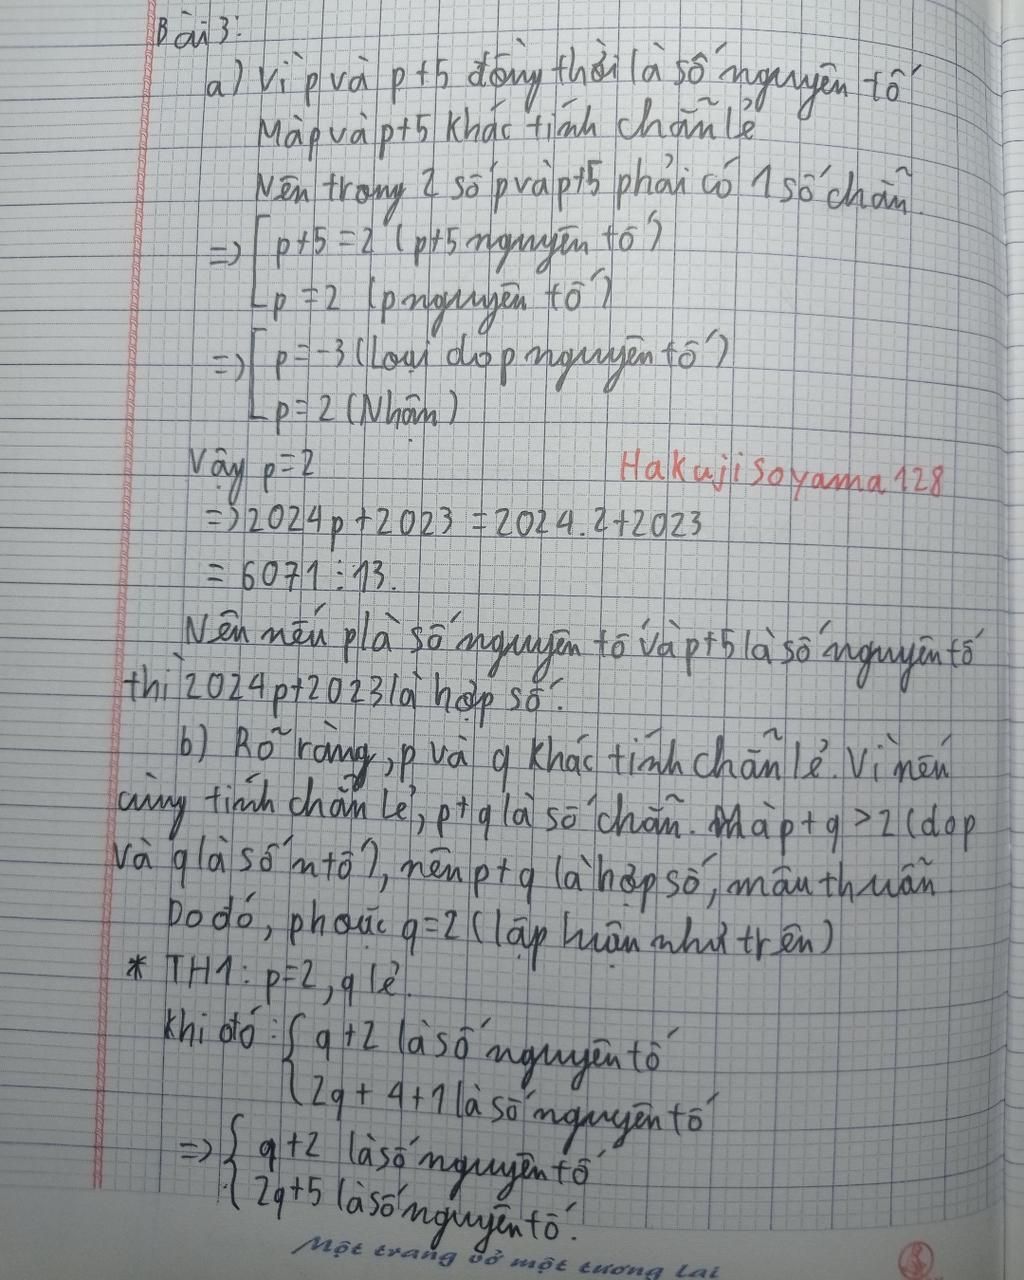 Bài 3:
a) Vì p và p+5 đồng thời là số nguyên tố
Mà p và p+5 khác tính chẵn lẻ
Nên trong 2 số p và p+5 phải có 1 số chẵn.
=> [ p+5 = 2 (p+5 nguyên tố)
p = 2 (p nguyên tố)
=> [ p = -3 (Loại do p nguyên tố)
p = 2 (Nhận)
Vậy p = 2
HakujiSoyama128
=> 2024p + 2023 = 2024.2 + 2023
= 6071 ⋮ 13.
Nên nếu p là số nguyên tố và p+5 là số nguyên tố
thì 2024p+2023 là hợp số.
b) Rõ ràng, p và q khác tính chẵn lẻ. Vì nếu
cùng tính chẵn lẻ, p+q là số chẵn. Mà p+q > 2 (do p
và q là số ntố), nên p+q là hợp số, mâu thuẫn
Do đó, p hoặc q = 2 (lập luận như trên)
* TH1: p=2, q lẻ.
Khi đó: { q+2 là số nguyên tố
2q + 4 + 1 là số nguyên tố
=> { q+2 là số nguyên tố
2q+5 là số nguyên tố.
Một trang vở một tương lai